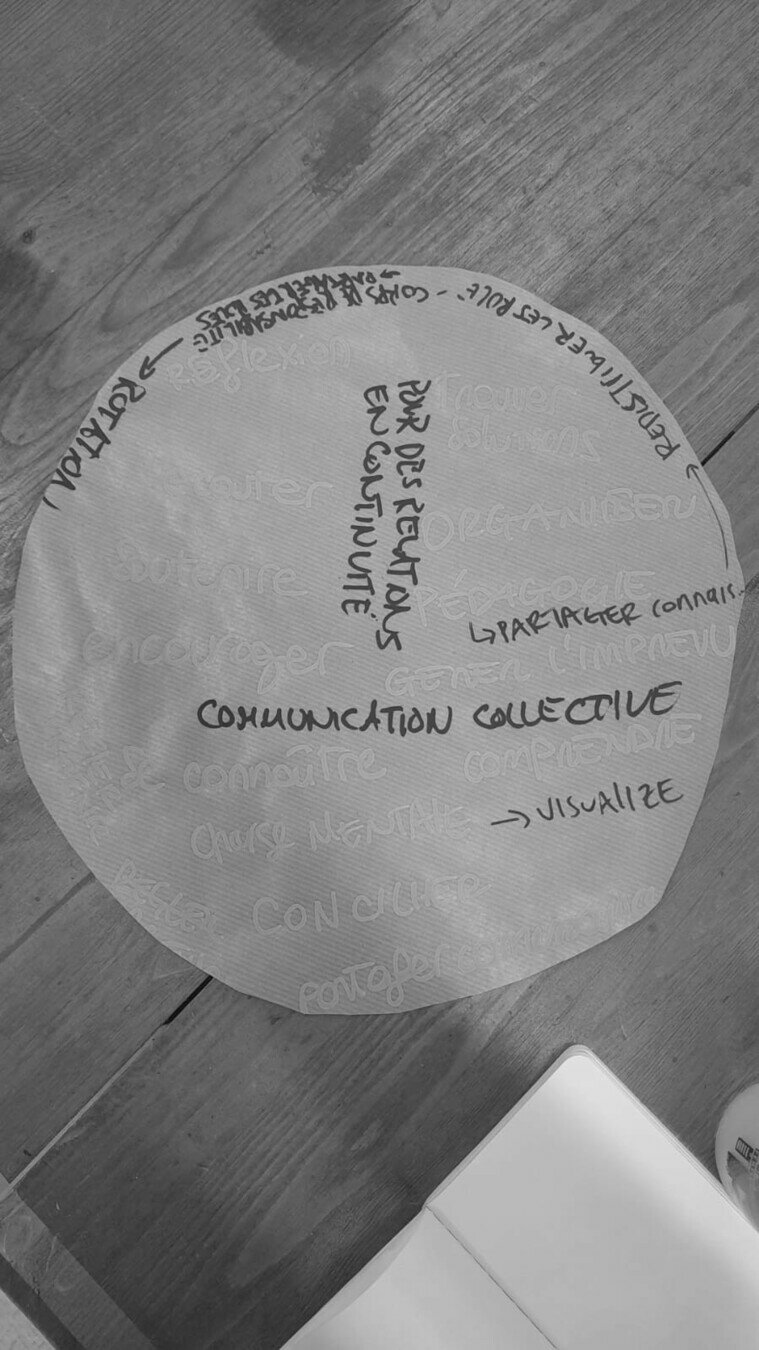 ROTATION →
CORPS DE RESPONSABILITÉ
→ PARTAGER LES RÔLES
REDISTRIBUER LES RÔLE
Réflexion
Trouver
solutions
POUR DES RELATIONS
EN CONTINUITÉ
écouter
ORGANISER
PÉDAGOGIE
↳ PARTAGER connais.
encourager
GÉRER L'IMPRÉVU
COMMUNICATION COLLECTIVE
se connaître
COMPRENDRE
charge MENTALE → VISUALIZE
RÉGLER
CONCILIER
partager